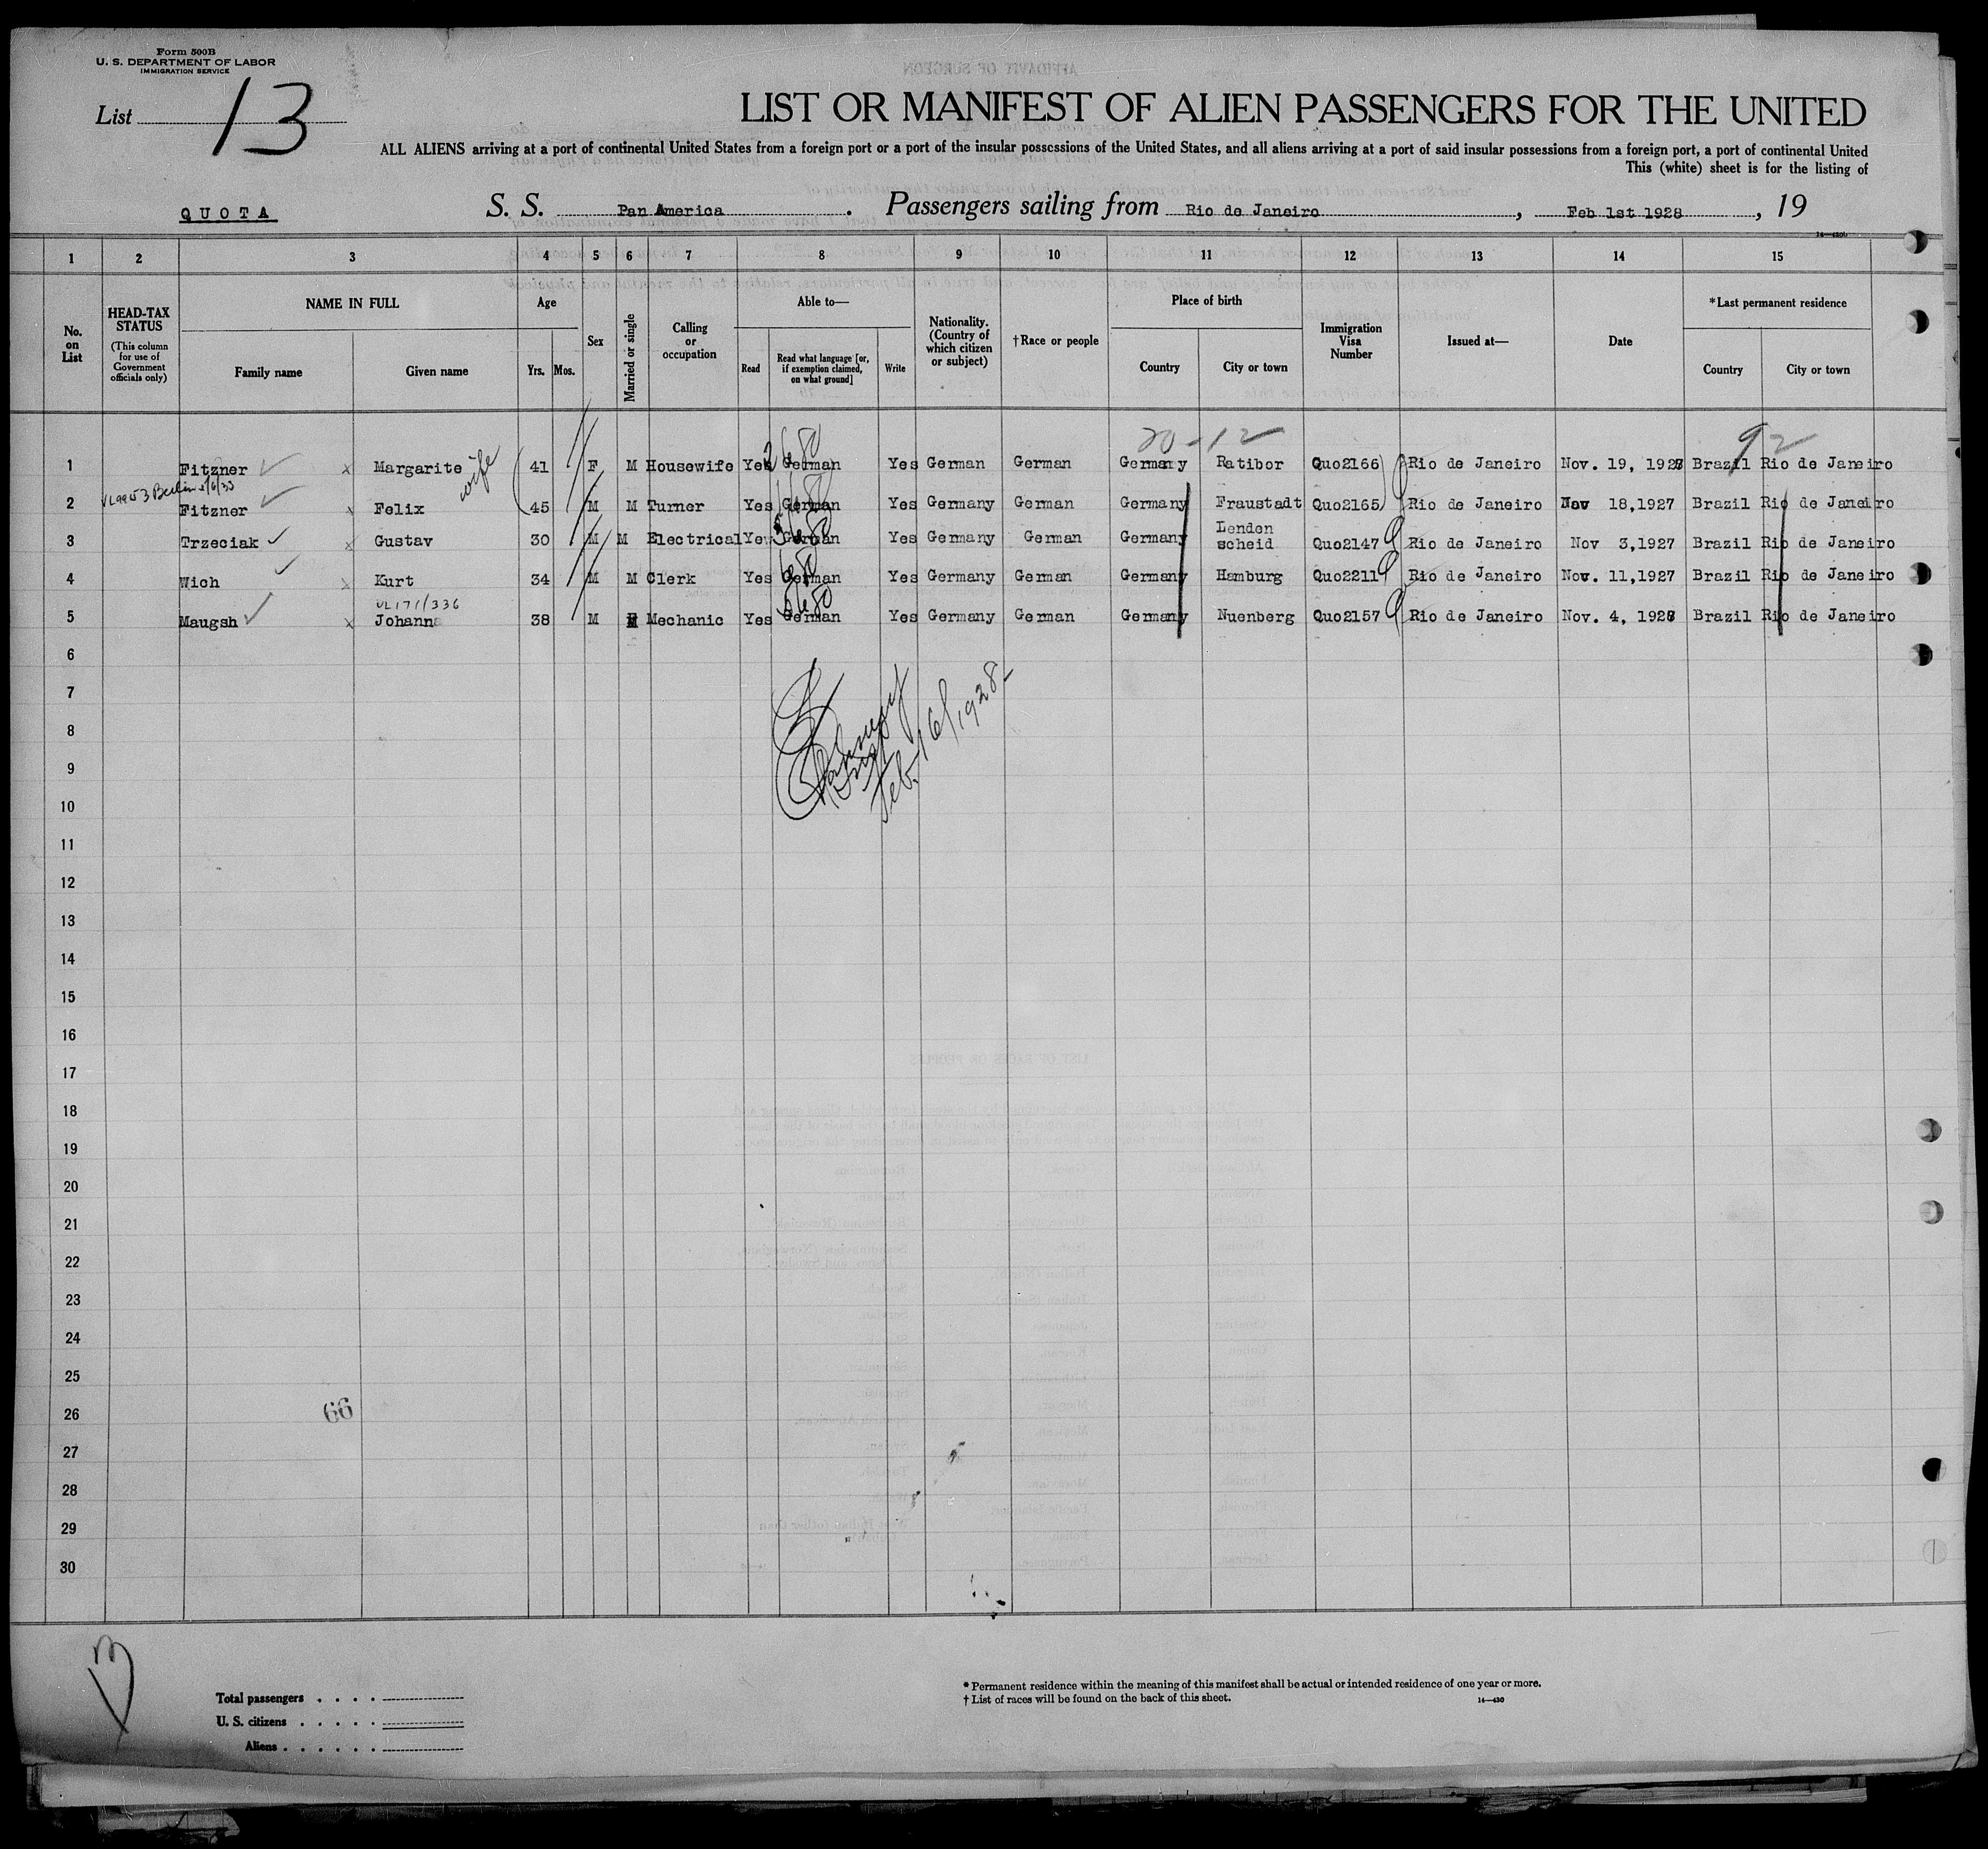 Form 500B
U. S. DEPARTMENT OF LABOR
IMMIGRATION SERVICE
List 13
LIST OR MANIFEST OF ALIEN PASSENGERS FOR THE UNITED
ALL ALIENS arriving at a port of continental United States from a foreign port or a port of the insular possessions of the United States, and all aliens arriving at a port of said insular possessions from a foreign port, a port of continental United
This (white) sheet is for the listing of
QUOTA S. S. Pan America . Passengers sailing from Rio de Janeiro , Feb 1st 1928 , 19
1 2 3 4 5 6 7 8 9 10 11 12 13 14 15
No. on List
HEAD-TAX STATUS
(This column for use of Government officials only)
NAME IN FULL
Family name Given name
Age
Yrs. Mos.
Sex
Married or single
Calling or occupation
Able to—
Read
Read what language [or, if exemption claimed, on what ground]
Write
Nationality. (Country of which citizen or subject)
†Race or people
Place of birth
Country City or town
Immigration Visa Number
Issued at—
Date
*Last permanent residence
Country City or town
20-12 92
1 Fitzner x Margarite wife 41 F M Housewife Yes German Yes German German Germany Ratibor Quo2166 Rio de Janeiro Nov. 19, 1927 Brazil Rio de Janeiro
2 Fitzner x Felix 45 M M Turner Yes German Yes Germany German Germany Fraustadt Quo2165 Rio de Janeiro Nov 18,1927 Brazil Rio de Janeiro
3 Trzeciak x Gustav 30 M M Electrical Yes German Yes Germany German Germany Lenden scheid Quo2147 Rio de Janeiro Nov 3,1927 Brazil Rio de Janeiro
4 Wich x Kurt 34 M M Clerk Yes German Yes Germany German Germany Hamburg Quo2211 Rio de Janeiro Nov. 11,1927 Brazil Rio de Janeiro
VL171/336
5 Maugsh x Johann 38 M M Mechanic Yes German Yes Germany German Germany Nuenberg Quo2157 Rio de Janeiro Nov. 4, 1928 Brazil Rio de Janeiro
6
7
8
Feb 16/1928
9
10
11
12
13
14
15
16
17
18
19
20
21
22
23
24
25
26
66
27
28
29
30
13
Total passengers
U. S. citizens
Aliens
* Permanent residence within the meaning of this manifest shall be actual or intended residence of one year or more.
† List of races will be found on the back of this sheet.
14—430